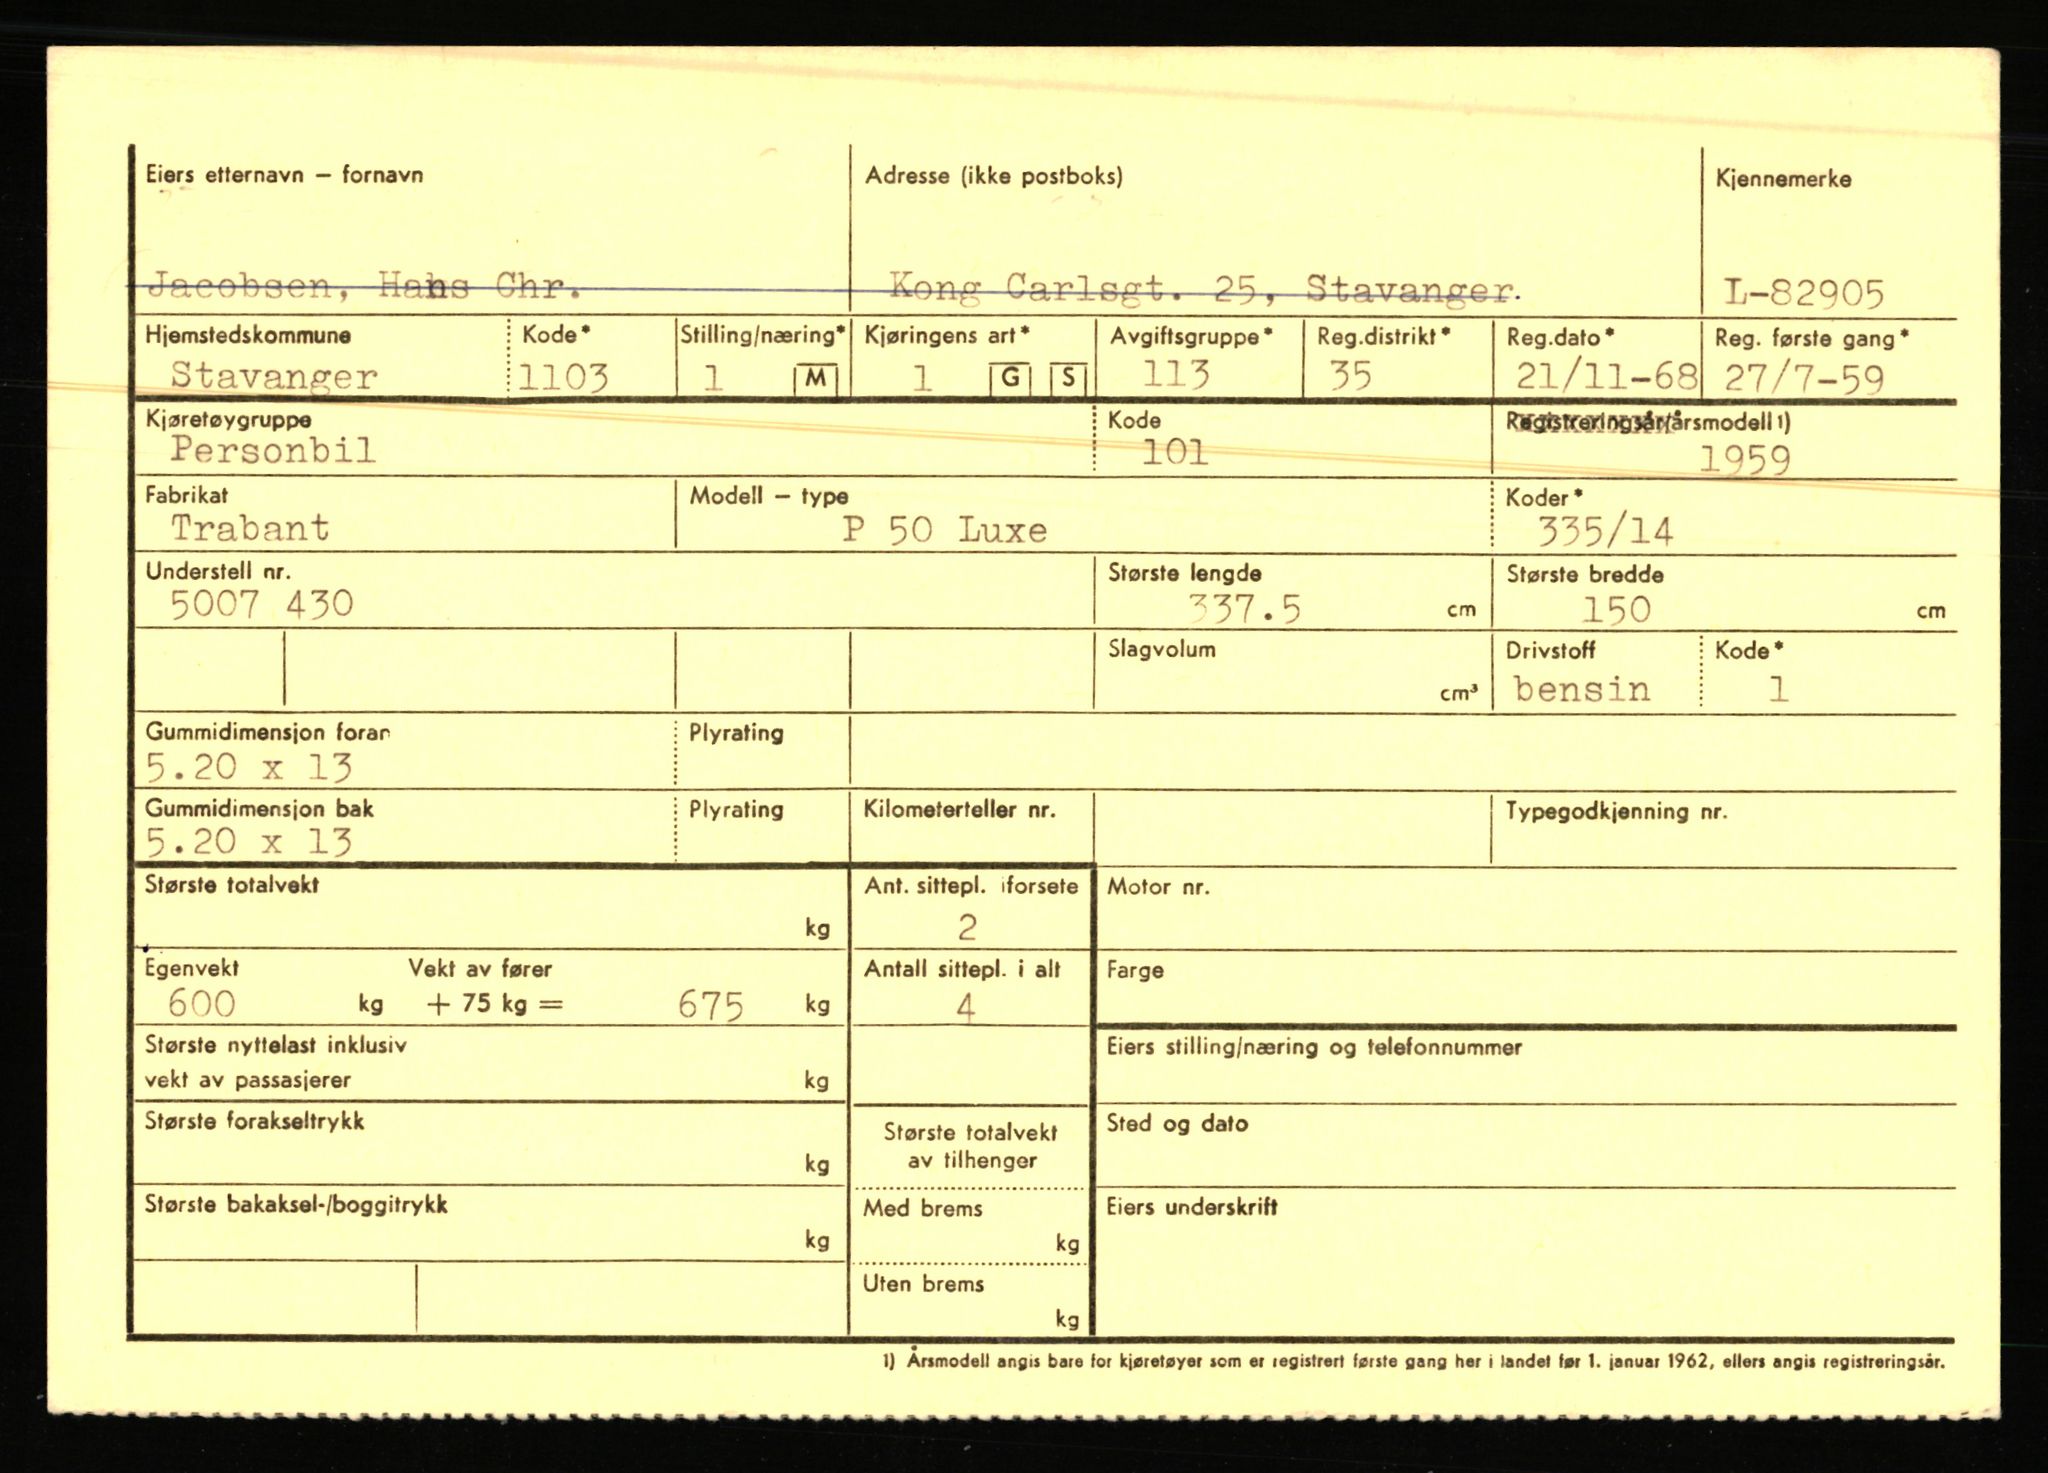 Eiers etternavn – fornavn Adresse (ikke postboks) Kjennemerke
Jacobsen, Hans Chr. Kong Carlsgt. 25, Stavanger. L-82905
Hjemstedskommune Kode* Stilling/næring* Kjøringens art* Avgiftsgruppe* Reg.distrikt* Reg.dato* Reg. første gang*
Stavanger 1103 1 M 1 G S 113 35 21/11-68 27/7-59
Kjøretøygruppe Kode Registreringsår/årsmodell 1)
Personbil 101 1959
Fabrikat Modell – type Koder*
Trabant P 50 Luxe 335/14
Understell nr. Største lengde Største bredde
5007 430 337.5 cm 150 cm
Slagvolum Drivstoff Kode*
cm³ bensin 1
Gummidimensjon foran Plyrating
5.20 x 13
Gummidimensjon bak Plyrating Kilometerteller nr. Typegodkjenning nr.
5.20 x 13
Største totalvekt Ant. sittepl. i forsete Motor nr.
kg 2
Egenvekt Vekt av fører Antall sittepl. i alt Farge
600 kg + 75 kg = 675 kg 4
Største nyttelast inklusiv Eiers stilling/næring og telefonnummer
vekt av passasjerer kg
Største forakseltrykk Største totalvekt Sted og dato
kg av tilhenger
Største bakaksel-/boggitrykk Med brems Eiers underskrift
kg kg
Uten brems
kg
1) Årsmodell angis bare for kjøretøyer som er registrert første gang her i landet før 1. januar 1962, ellers angis registreringsår.